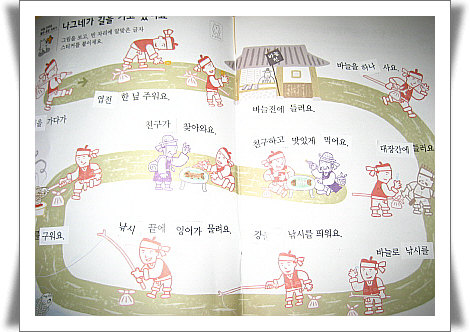 나그네가 길을 가고 있어요.
그림을 보고, 빈 자리에 알맞은 글자
스티커를 붙이세요.
바늘을 하나 사요.
엽전 한 닢 주워요.
바늘전에 들러요.
을 가다가
친구가 찾아와요.
친구하고 맛있게 먹어요.
대장간에 들러요.
를 구워요.
낚시 끝에 잉어가 물려요.
낚시를 띄워요.
바늘로 낚시를